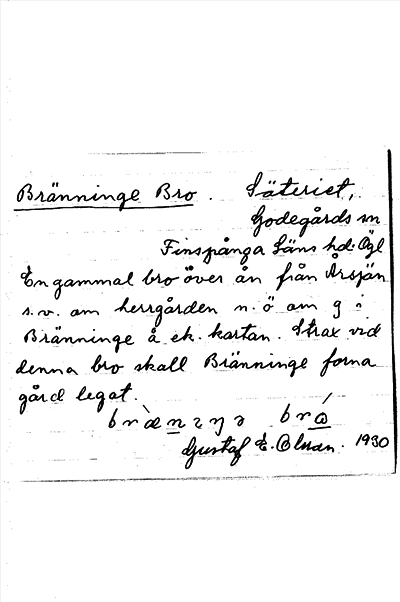 Bränninge Bro. Säteriet,
Godegårds sn
Finspånga läns hd: Ögl
En gammal bro över ån från Årsjön
s.v. om herrgården n. ö om g i
Bränninge å ek. kartan. Strax vid
denna bro skall Bränninge forna
gård legat.
Gustaf E. Olsson. 1930